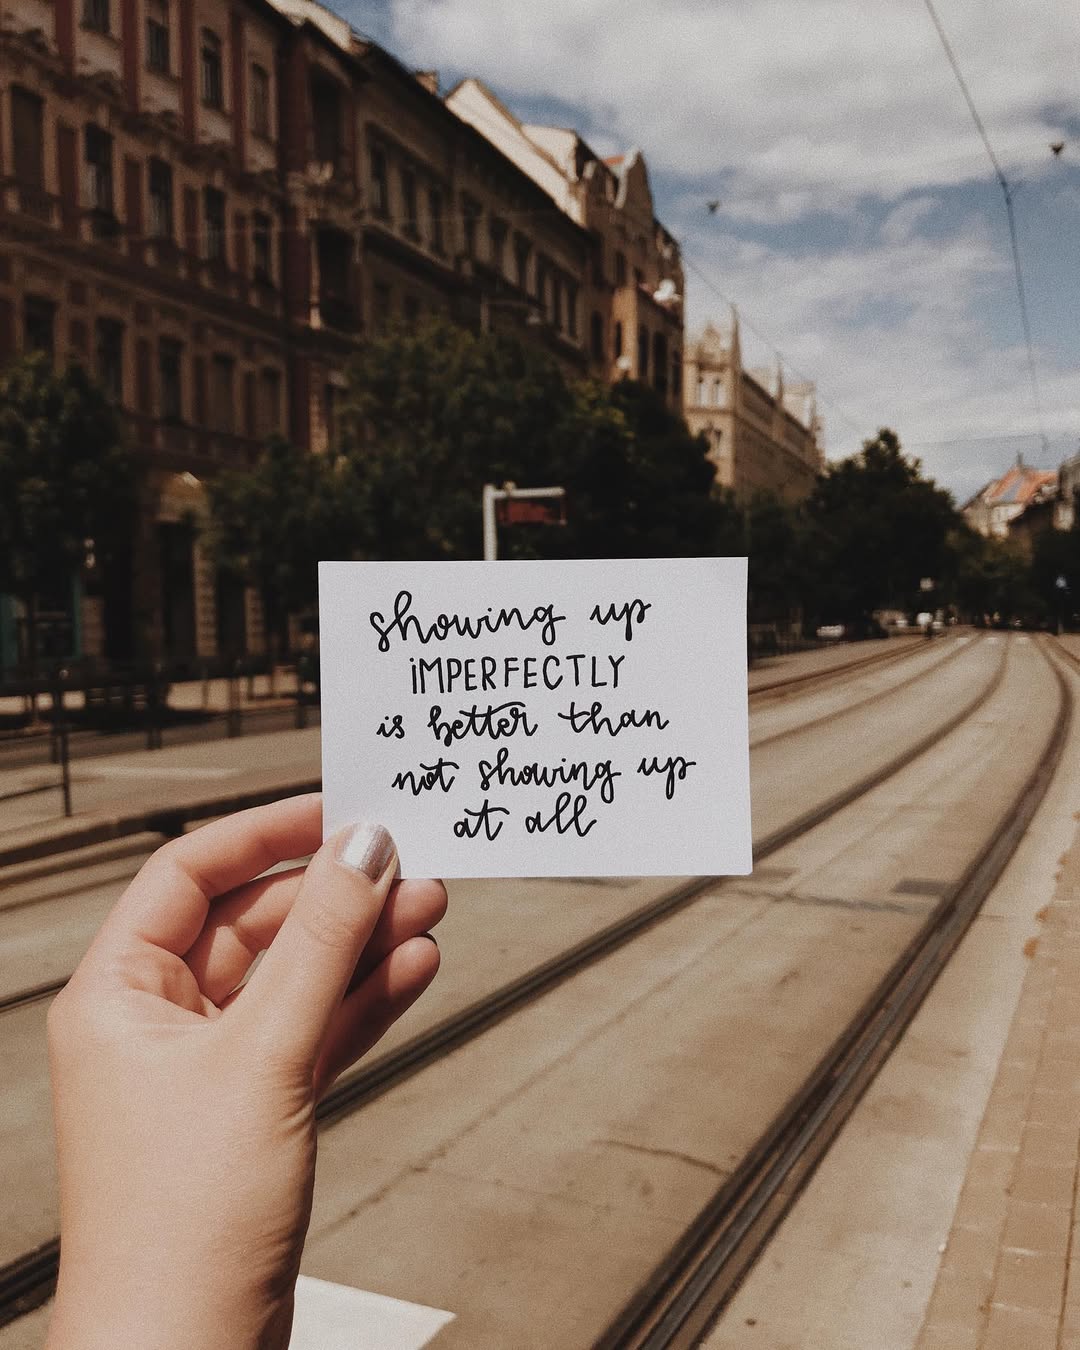 showing up
iMPERFECTLY
is better than
not showing up
at all